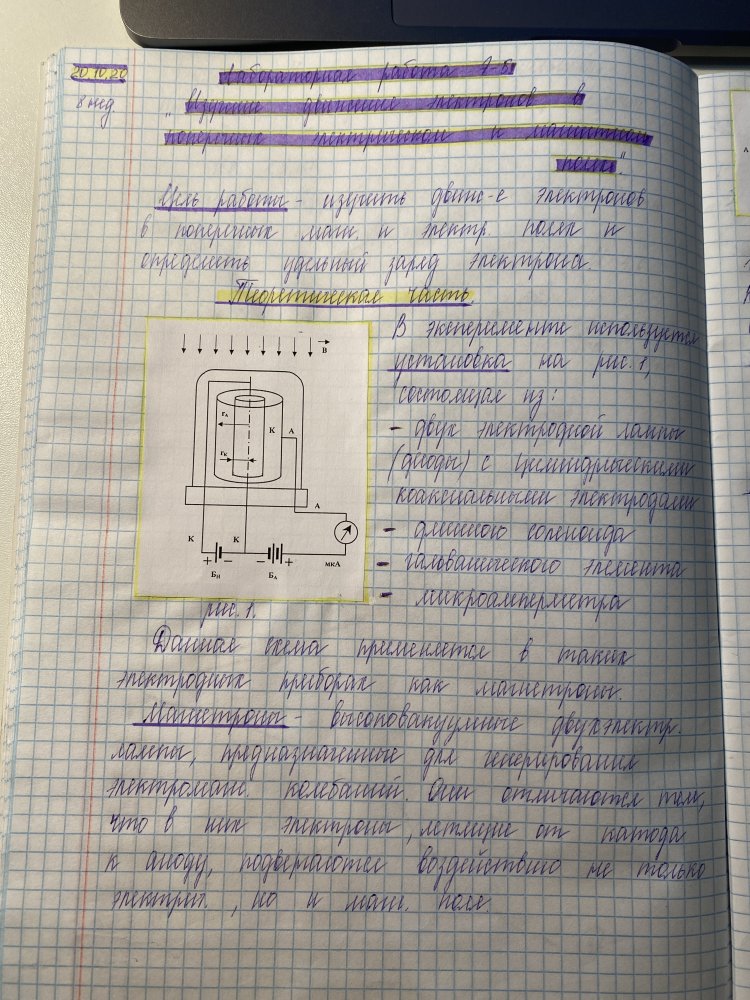 20.10.20
8 нед.
Лабораторная работа 7-б
"Изучение движение электронов в
поперечных электрическом и магнитном
полях".
Цель работы - изучить движ-е электронов
в поперечных магн. и электр. полях и
определить удельный заряд электрона.
Теоретическая часть
В эксперименте используется
установка на рис. 1,
состоящая из:
- двух электродной лампы
(диоды) с цилиндрическими
коаксиальными электродами
- длинного соленоида
- гальванического элемента
- микроамперметра
B
rА
К
А
rК
А
К
К
+ − − +
БН
БА
мкА
рис. 1.
Данная схема применяется в таких
электродных приборах как магнетроны.
Магнетроны - высоковакуумные двухэлектр.
лампы, предназначенные для генерирования
электромагн. колебаний. Они отличаются тем,
что в них электроны, летящие от катода
к аноду, подвергаются воздействию не только
электрич., но и магн. поля